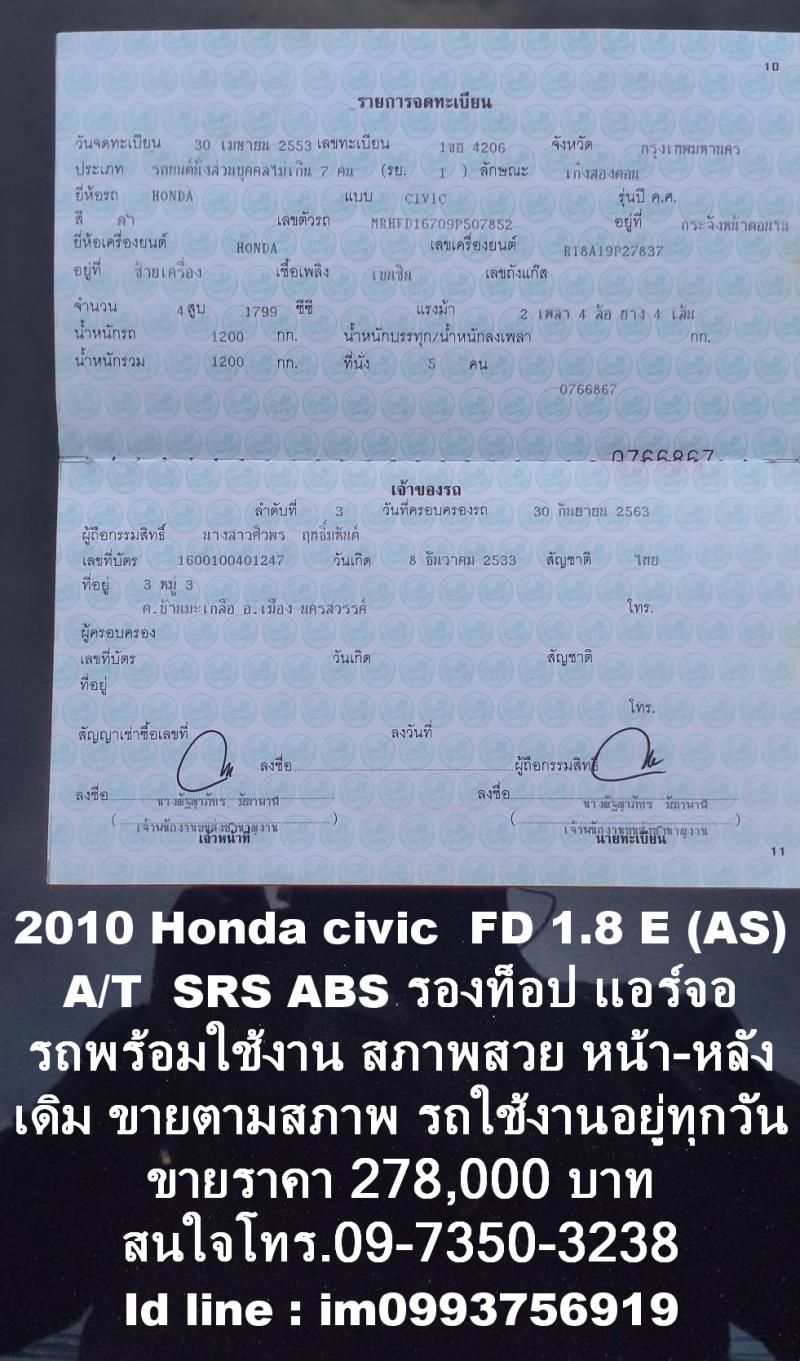 10
รายการจดทะเบียน
วันจดทะเบียน 30 เมษายน 2553 เลขทะเบียน 1ขอ 4206 จังหวัด กรุงเทพมหานคร
ประเภท รถยนต์นั่งส่วนบุคคลไม่เกิน 7 คน (รย. 1 ) ลักษณะ เก๋งสองตอน
ยี่ห้อรถ HONDA แบบ CIVIC รุ่นปี ค.ศ.
สี ดำ เลขตัวรถ MRHFD16709P507852 อยู่ที่ กระจังหน้าตอนใน
ยี่ห้อเครื่องยนต์ HONDA เลขเครื่องยนต์ R18A19P27837
อยู่ที่ ซ้ายเครื่อง เชื้อเพลิง เบนซิน เลขถังแก๊ส
จำนวน 4 สูบ 1799 ซีซี แรงม้า 2 เพลา 4 ล้อ ยาง 4 เส้น
น้ำหนักรถ 1200 กก. น้ำหนักบรรทุก/น้ำหนักลงเพลา กก.
น้ำหนักรวม 1200 กก. ที่นั่ง 5 คน
0766867
0766867
เจ้าของรถ
ลำดับที่ 3 วันที่ครอบครองรถ 30 กันยายน 2563
ผู้ถือกรรมสิทธิ์ นางสาวศิวพร
เลขที่บัตร 1600100401247 วันเกิด 8 ธันวาคม 2533 สัญชาติ ไทย
ที่อยู่ 3 หมู่ 3
ต.บ้านมะเกลือ อ.เมือง นครสวรรค์ โทร.
ผู้ครอบครอง
เลขที่บัตร วันเกิด สัญชาติ
ที่อยู่
โทร.
สัญญาเช่าซื้อเลขที่ ลงวันที่
ลงชื่อ ผู้ถือกรรมสิทธิ์
ลงชื่อ ลงชื่อ
( เจ้าพนักงานขนส่งชำนาญงาน ) ( เจ้าพนักงานขนส่งชำนาญงาน )
เจ้าหน้าที่ นายทะเบียน
11
2010 Honda civic FD 1.8 E (AS)
A/T SRS ABS รองท็อป แอร์จอ
รถพร้อมใช้งาน สภาพสวย หน้า-หลัง
เดิม ขายตามสภาพ รถใช้งานอยู่ทุกวัน
ขายราคา 278,000 บาท
สนใจโทร.09-7350-3238
Id line : im0993756919